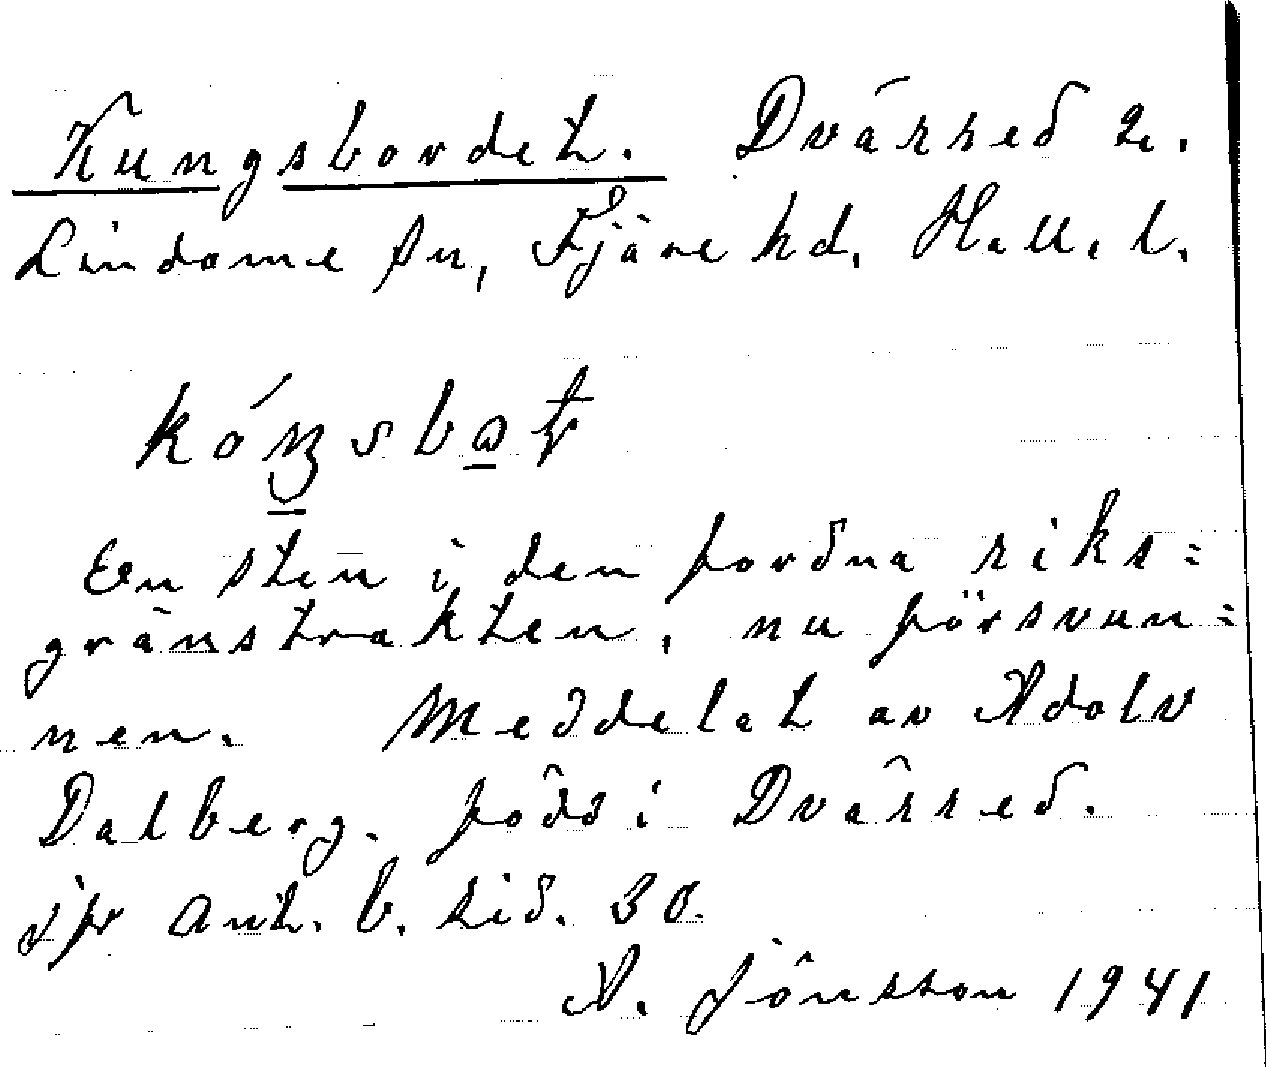 Kungsbordet. Dvärred 2.
Lindome sn, Fjäre hd, Hall. l.
En sten i den fordna riks=
gränstrakten, nu försvun=
nen. Meddelat av Adolv
Dalberg. född i Dvärred.
jfr Ant. b. sid. 30.
A. Jönsson 1941